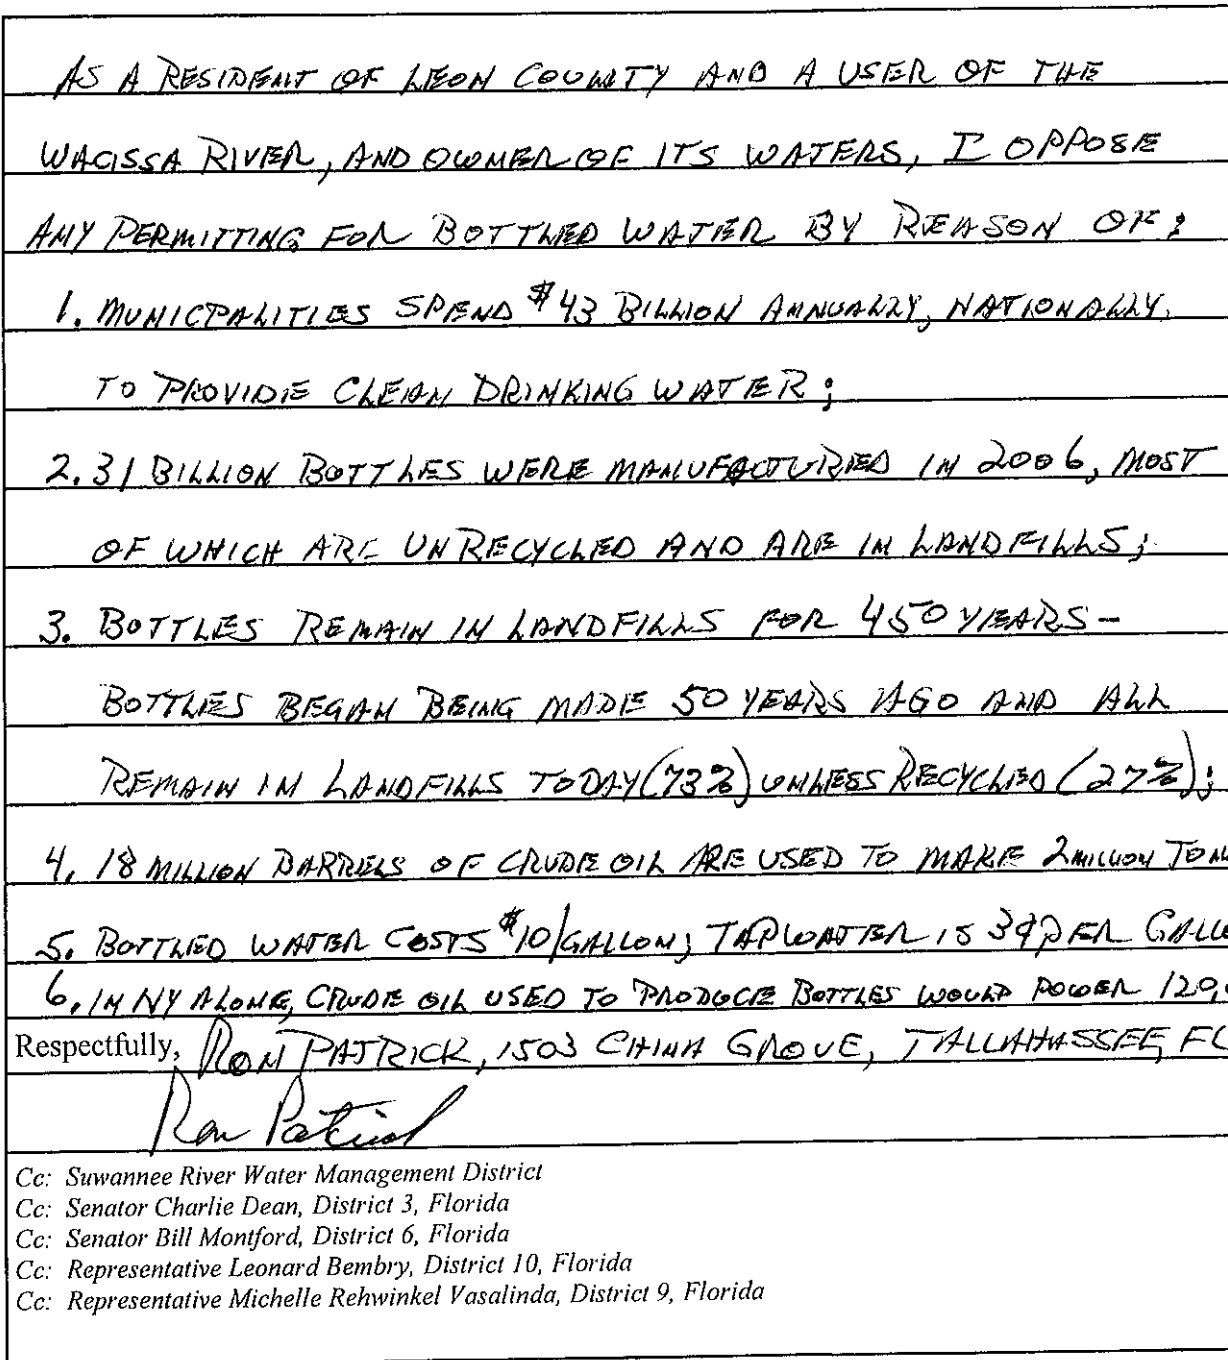 AS A RESIDENT OF LEON COUNTY AND A USER OF THE
WACISSA RIVER, AND OWNER OF ITS WATERS, I OPPOSE
ANY PERMITTING FOR BOTTLED WATER BY REASON OF:
1. MUNICPALITIES SPEND $43 BILLION ANNUALLY, NATIONALLY,
TO PROVIDE CLEAN DRINKING WATER;
2. 31 BILLION BOTTLES WERE MANUFACTURED IN 2006, MOST
OF WHICH ARE UNRECYCLED AND ARE IN LANDFILLS;
3. BOTTLES REMAIN IN LANDFILLS FOR 450 YEARS-
BOTTLES BEGAN BEING MADE 50 YEARS AGO AND ALL
REMAIN IN LANDFILLS TODAY (73%) UNLESS RECYCLED (27%);
4. 18 MILLION BARRELS OF CRUDE OIL ARE USED TO MAKE 2 MILLION TON
5. BOTTLED WATER COSTS $10/GALLON; TAPWATER IS 3¢ PER GALLO
6. IN NY ALONE, CRUDE OIL USED TO PRODUCE BOTTLES WOULD POWER 120,
Respectfully, RON PATRICK, 1503 CHINA GROVE, TALLAHASSEE, FL
Ron Patrick
Cc: Suwannee River Water Management District
Cc: Senator Charlie Dean, District 3, Florida
Cc: Senator Bill Montford, District 6, Florida
Cc: Representative Leonard Bembry, District 10, Florida
Cc: Representative Michelle Rehwinkel Vasalinda, District 9, Florida